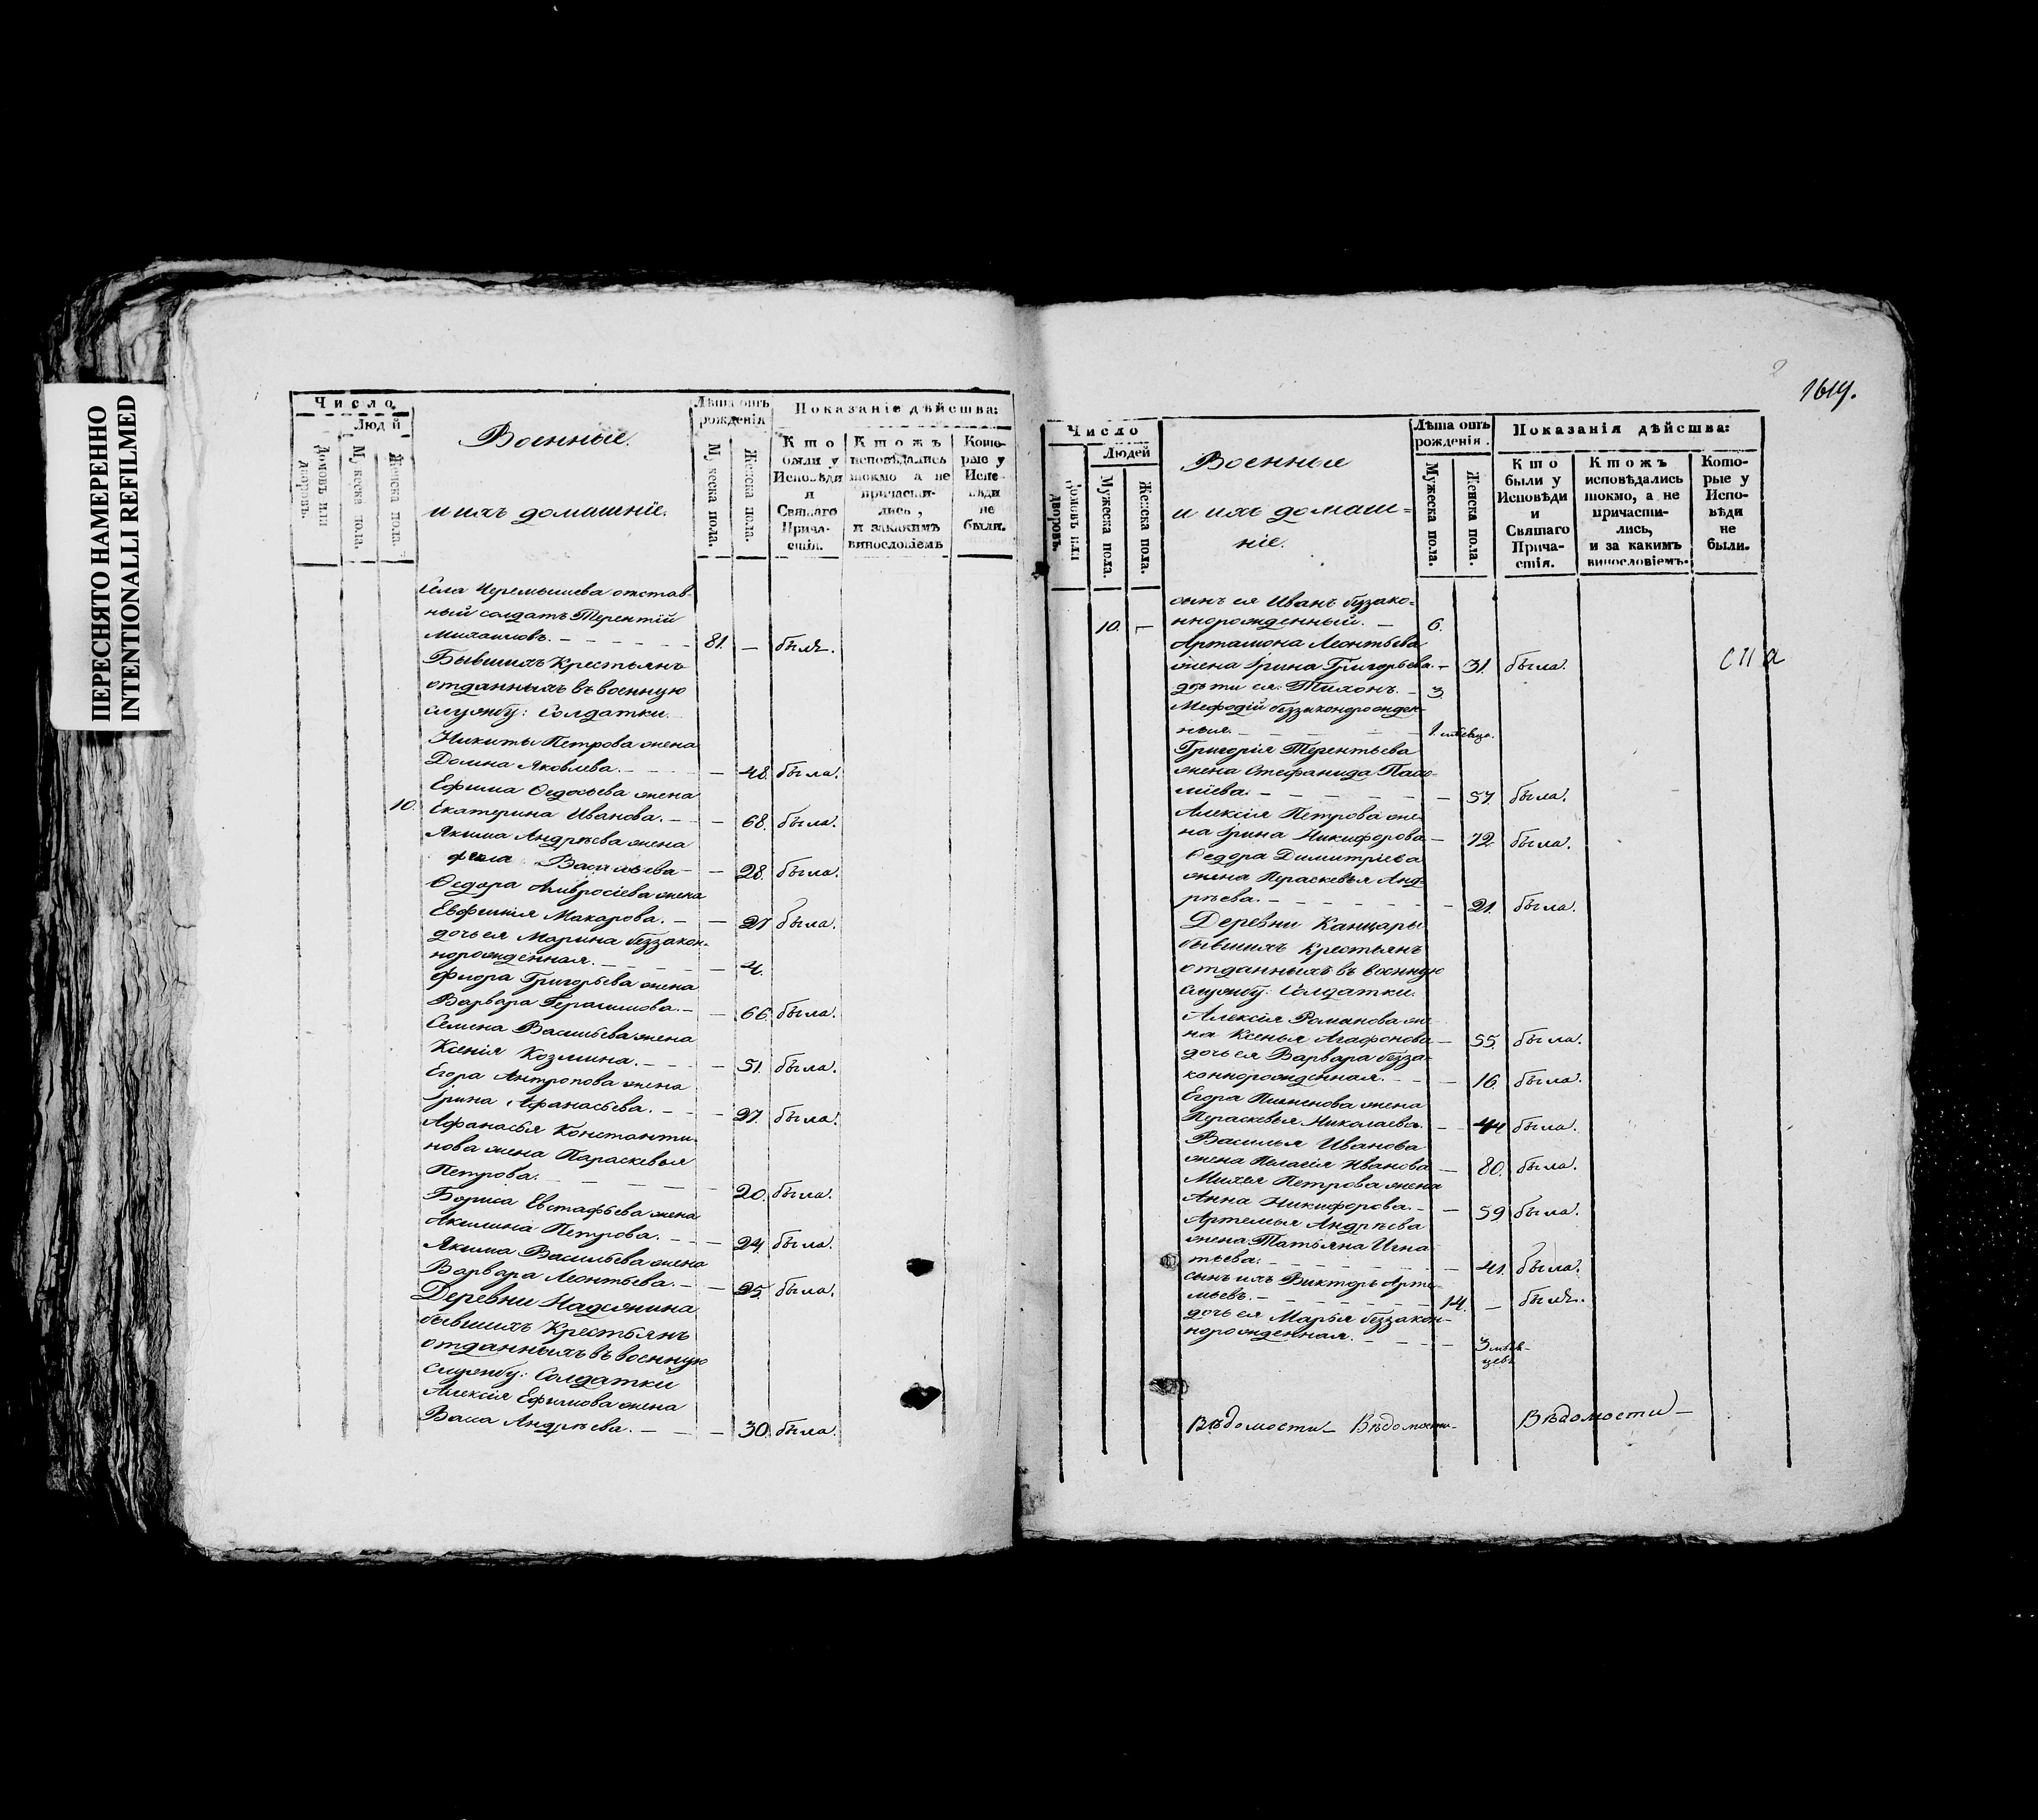 ПЕРЕСНЯТО НАМЕРЕННО
INTENTIONALLI REFILMED
Число
Людей
Домовъ или дворовъ.
Мужеска пола.
Женска пола.
Военные
и ихъ домашніе.
Лѣта отъ рожденія
Мужеска пола.
Женска пола.
Показаніе дѣйства:
Кто были у Исповѣди и Святаго Причастія.
Ктожъ исповѣдались токмо а не причастились, и закакимъ винословіемъ
Которые у Исповѣди не были.
Села Черемышева отстав-
ный солдатъ Терентій
Михаиловъ. – 81. – былъ.
Бывшихъ Крестьянъ
отданныхъ въ военную
службу: Солдатки.
Никиты Петрова жена
Домна Яковлева. – 48. была.
Ефима Ѳедосѣева жена
10. Екатерина Иванова. – 68. была.
Якима Андрѣева жена
Васильева – 28. была.
Ѳедора Амвросіева жена
Евфимія Макарова. – 27 была.
дочь ея Марина беззакон-
норожденная. – 4.
Флора Григорьева жена
Варвара Герасимова. – 66. была.
Семена Васильева жена
Ксенія Козмина. – 51. была.
Егора Антропова жена
Ірина Афанасьева. – 27. была.
Афанасья Константи-
нова жена Параскевья
Петрова. – 20. была.
Бориса Евстафьева жена
Акилина Петрова. – 24. была.
Якима Васильева жена
Варвара Леонтьева. – 25. была.
Деревни Надежина
бывшихъ Крестьянъ
отданныхъ въ военную
службу: Солдатки
Алексія Ефимова жена
Васа Андрѣева. – 30. была.
1619.
Число
Людей
Домовъ или дворовъ.
Мужеска пола.
Женска пола.
Военные
и ихъ домаш=
ніе.
Лѣта отъ рожденія.
Мужеска пола.
Женска пола.
Показанія дѣйства:
Кто были у Исповѣди и Святаго Причастія.
Ктожъ исповѣдались токмо, а не причастились, и за какимъ винословіемъ.
Которые у Исповѣди не были.
сынъ ея Иванъ беззако=
10. – ннорожденный. – 6.
Артамона Леонтьева
жена Ірина Григорьева. – 31. была.
дѣти ея: Тихонъ. – 3
Мефодій беззаконорожден-
ныя. – 1. мѣсяца.
Григорія Терентьева
жена Стефанида
57. была.
Алексія Петрова же-
на Ірина Никифорова – 72 была.
Ѳедора Димитріева
жена Пераскевья Анд-
рѣева. – 21. была.
Деревни Канцары
бывшихъ Крестьянъ
отданныхъ въ военную
службу: Солдатки.
Алексія Романова же-
на Ксенья Агафонова – 55. была.
дочь ея Варвара безза-
коннорожденная. – 16. была.
Егора Пименова жена
Пераскевья Николаева. – 44 была.
Василья Иванова
жена Пелагія Иванова – 80. была.
Михея Петрова жена
Анна Никифорова. – 59 была.
Артемья Андрѣева
жена Татьяна Игна-
тьева. – 41. была.
сынъ ихъ Викторъ Арте-
мьевъ. – 14. – былъ.
дочь ея Марья беззакон-
норожденная. – 3 мѣся-
цевъ
Вѣдомости – Вѣдомости – Вѣдомости –